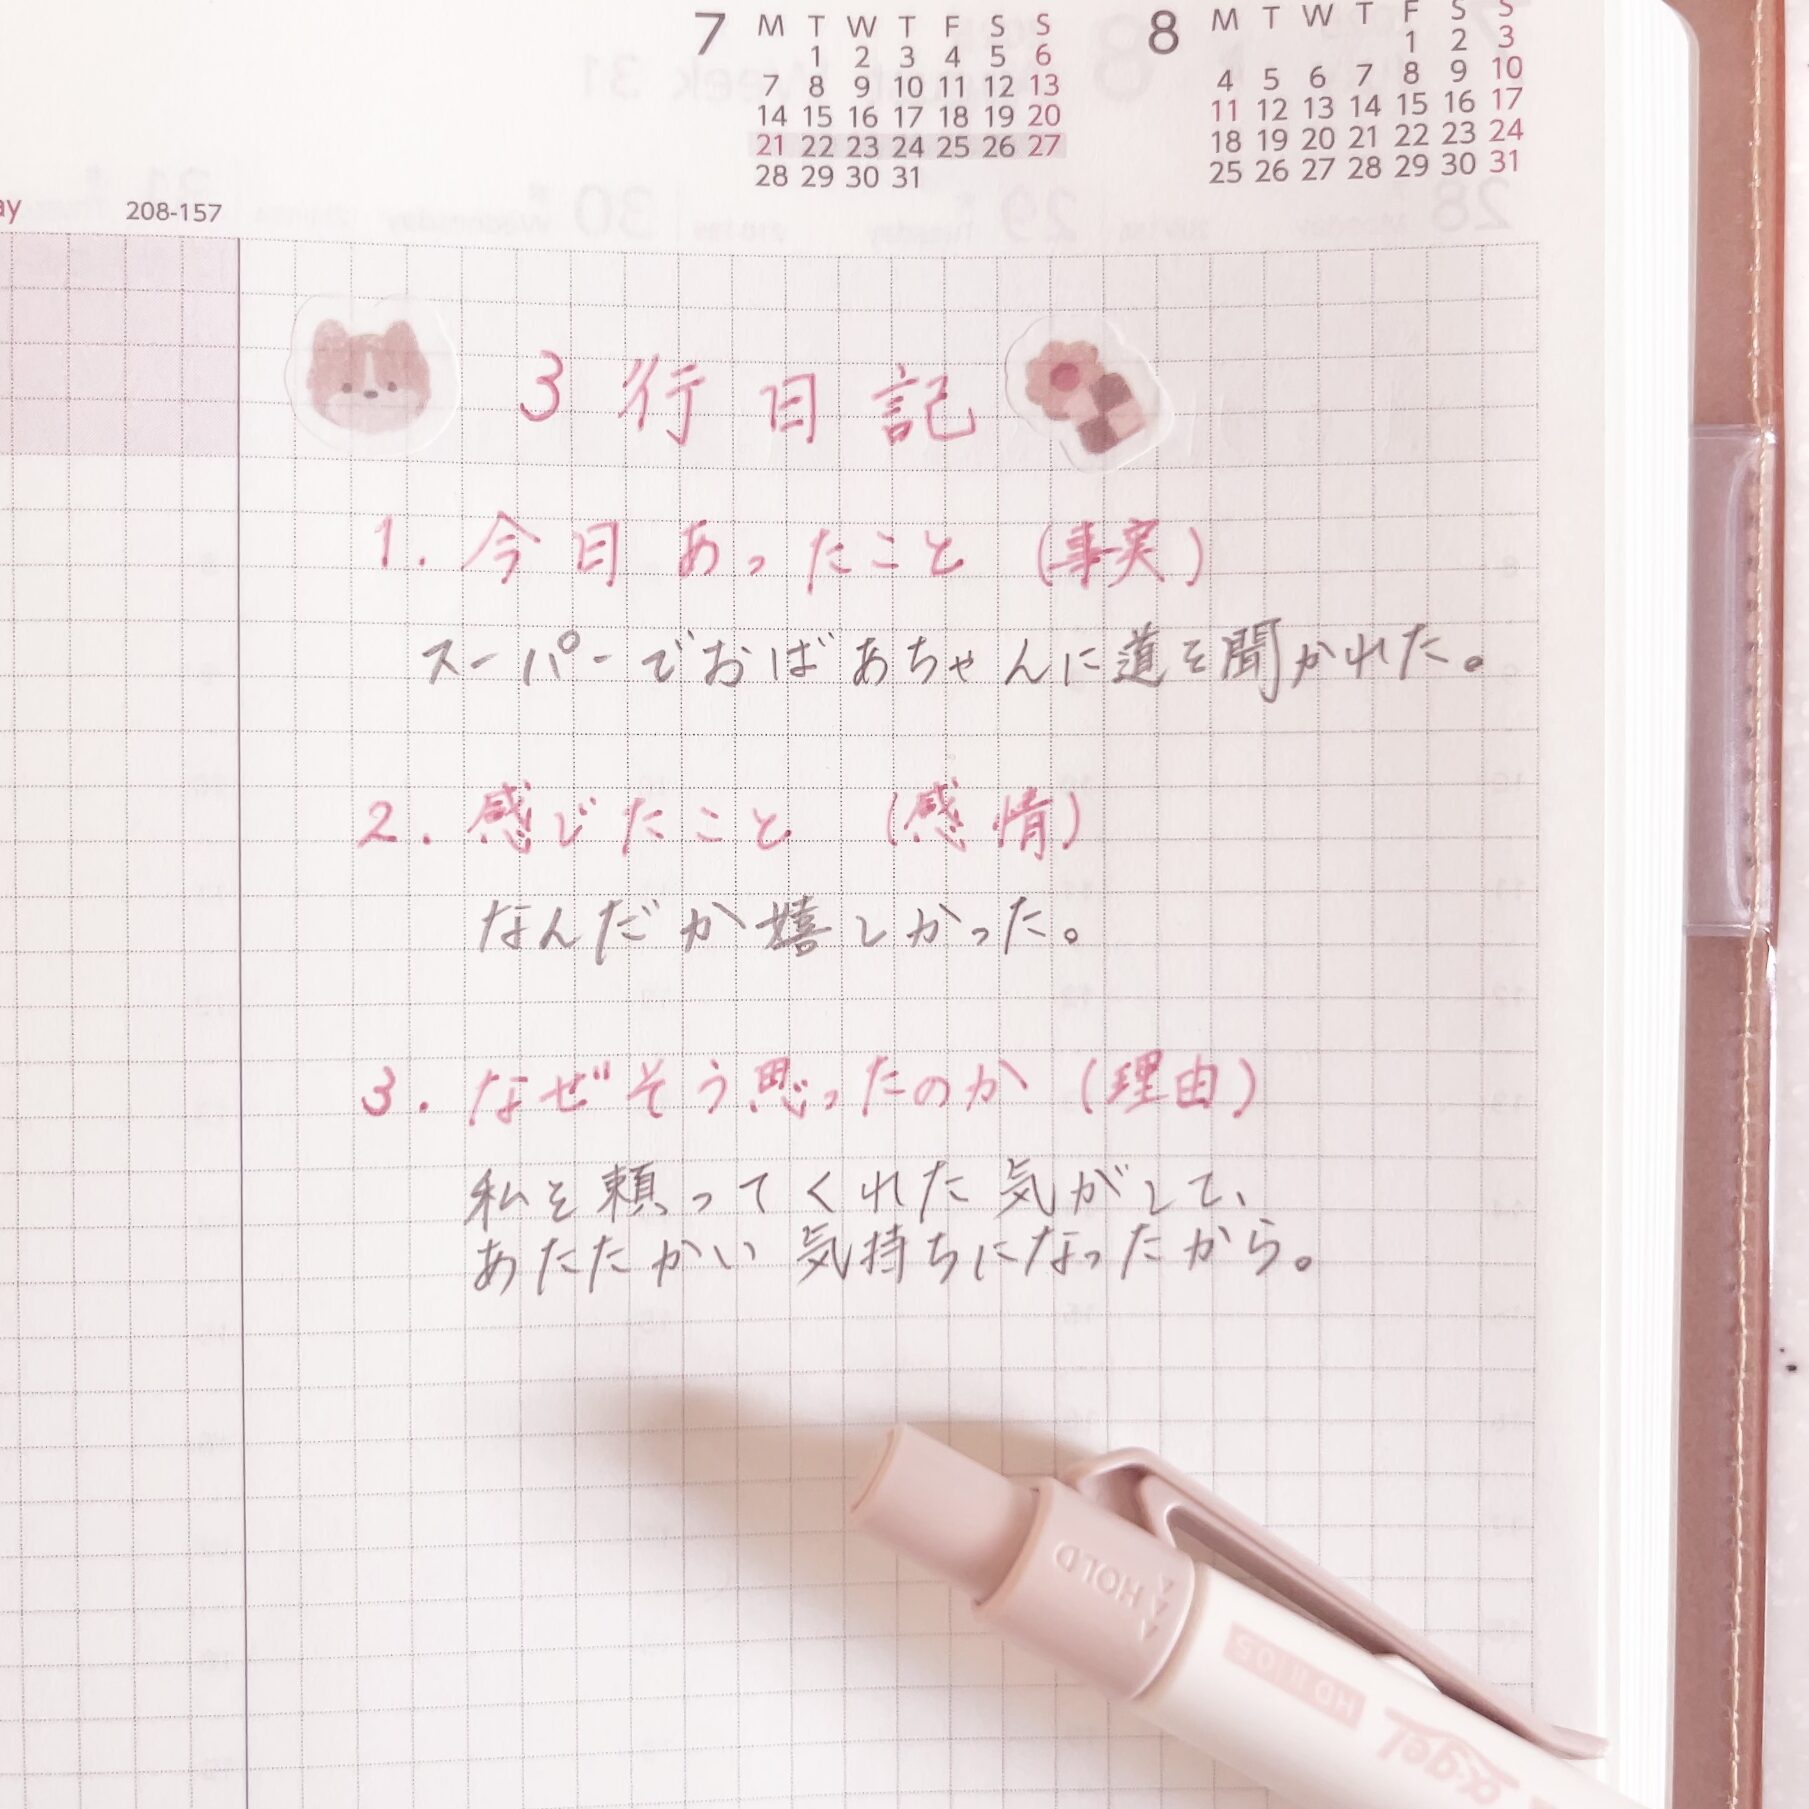 7 M T W T F S S
1 2 3 4 5 6
7 8 9 10 11 12 13
14 15 16 17 18 19 20
21 22 23 24 25 26 27
28 29 30 31
8 M T W T F S S
1 2 3
4 5 6 7 8 9 10
11 12 13 14 15 16 17
18 19 20 21 22 23 24
25 26 27 28 29 30 31
ay 208-157
3行日記
1. 今日あったこと (事実)
スーパーでおばあちゃんに道を聞かれた。
2. 感じたこと (感情)
なんだか嬉しかった。
3. なぜそう思ったのか (理由)
私を頼ってくれた気がして、
あたたかい気持ちになったから。
HOLD
α-gel